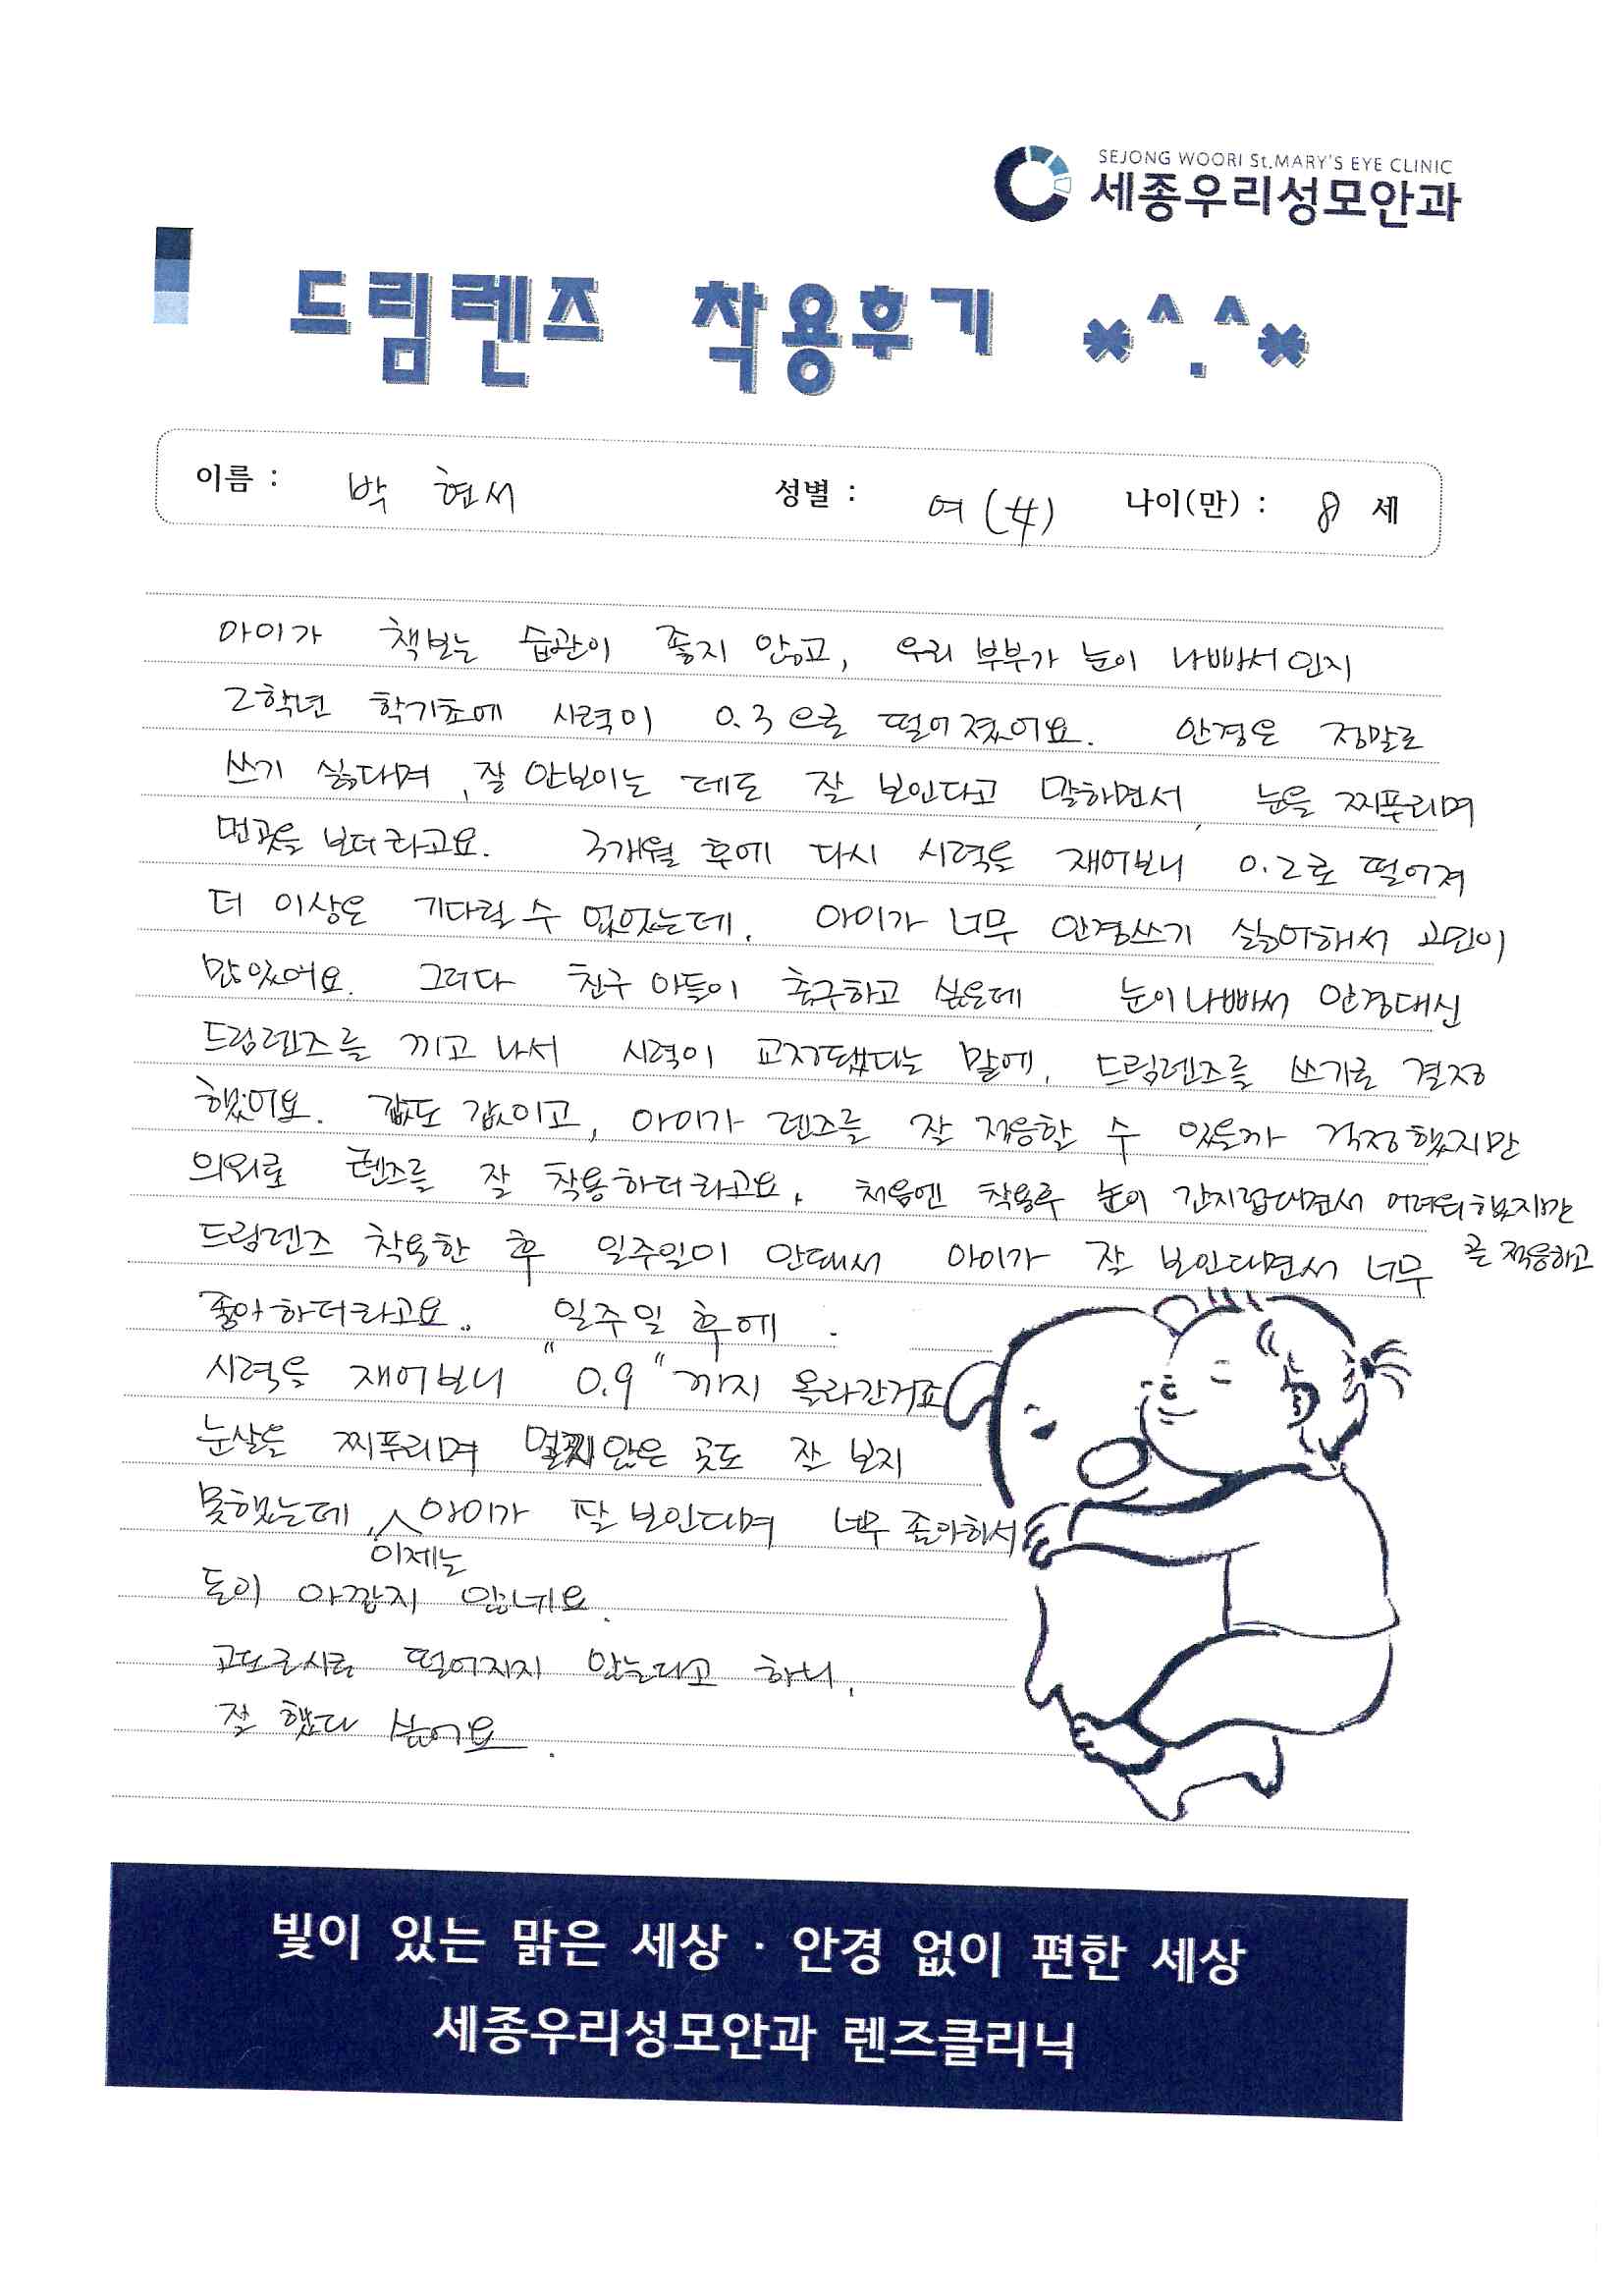 SEJONG WOORI St.MARY'S EYE CLINIC
세종우리성모안과
드림렌즈 착용후기 *^.^*
이름 : 박 현서 성별 : 여 (女) 나이(만) : 8 세
아이가 책보는 습관이 좋지 않고, 우리 부부가 눈이 나빠서인지
2학년 학기초에 시력이 0.3으로 떨어졌어요. 안경은 정말로
쓰기 싫다며, 잘 안보이는 데도 잘 보인다고 말하면서, 눈을 찌푸리며
먼곳을 보더라고요. 3개월 후에 다시 시력을 재어보니 0.2로 떨어져
더 이상은 기다릴 수 없었는데, 아이가 너무 안경쓰기 싫어해서 고민이
많았어요. 그러다 친구 아들이 축구하고 싶은데 눈이 나빠서 안경대신
드림렌즈를 끼고 나서 시력이 교정됐다는 말에, 드림렌즈를 쓰기로 결정
했어요. 값도 값이고, 아이가 렌즈를 잘 적응할 수 있을까 걱정했지만
의외로 렌즈를 잘 착용하더라고요. 처음엔 착용후 눈이 간지럽대면서 어려워했지만
곧 적응하고
드림렌즈 착용한 후 일주일이 안돼서 아이가 잘 보인대면서 너무
좋아하더라고요. 일주일 후에
시력을 재어보니 "0.9"까지 올라간거죠
눈살을 찌푸리며 멀지않은 곳도 잘 보지
못했는데, 아이가 잘 보인다며 너무 좋아해서
이제는
돈이 아깝지 않네요.
고도근시로 떨어지지 않는다고 하니,
잘 했다 싶어요.
빛이 있는 맑은 세상 · 안경 없이 편한 세상
세종우리성모안과 렌즈클리닉